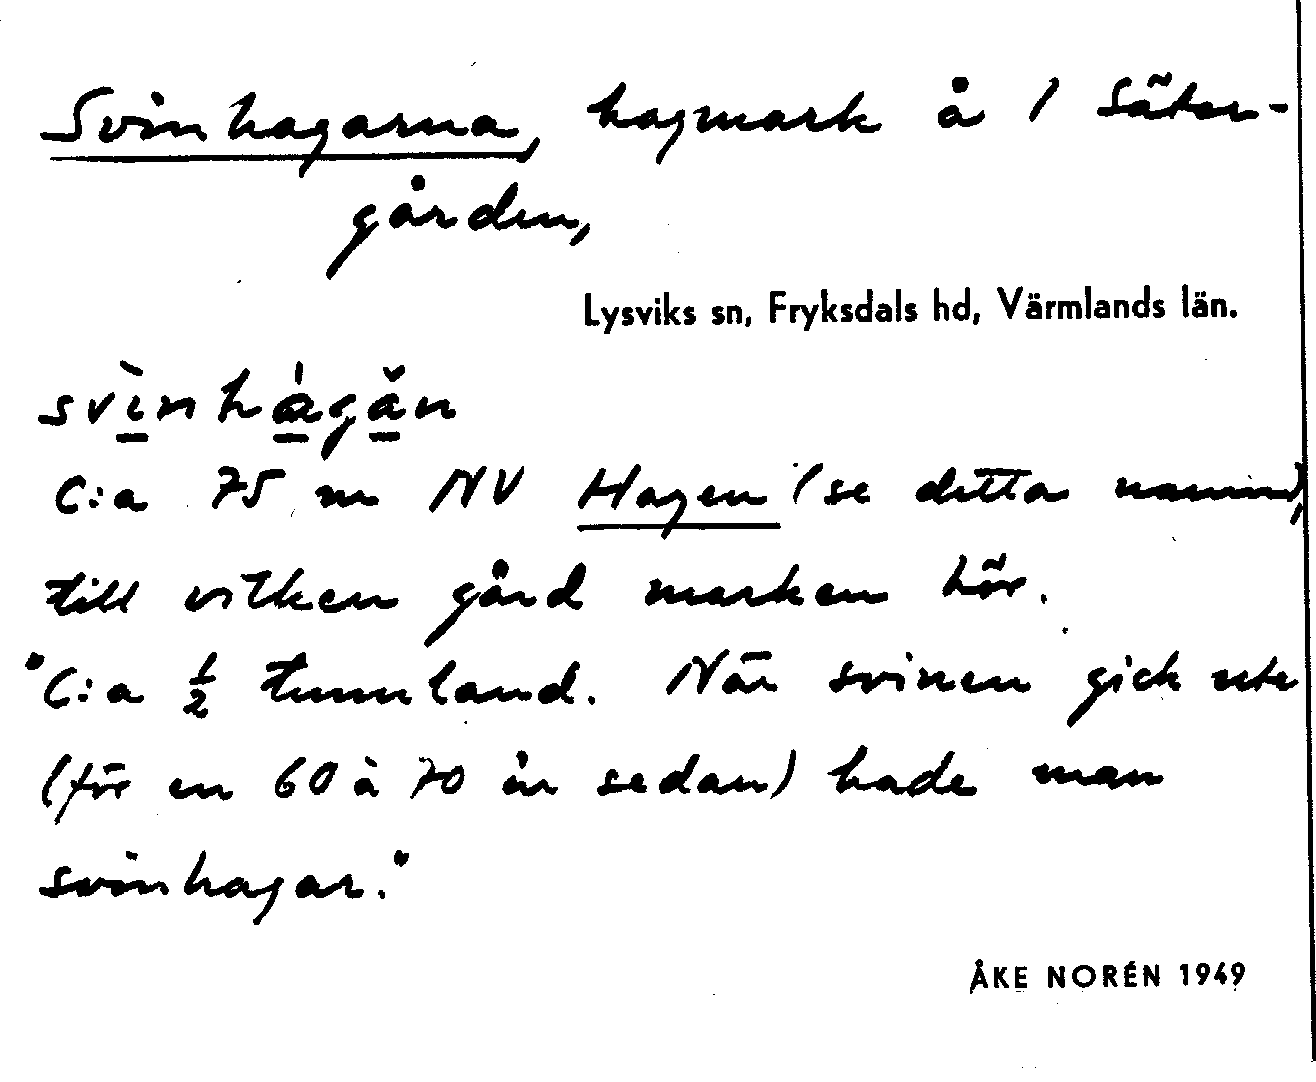 Svinhagarna, hagmark å 1 Säter-
gården,
Lysviks sn, Fryksdals hd, Värmlands län.
svìnhàgǎn
C:a 75 m NV Hagen (se detta namn),
till vilken gård marken hör.
"C:a ½ tunnland. När svinen gick ute
(för en 60 à 70 år sedan) hade man
svinhagar."
ÅKE NORÉN 1949